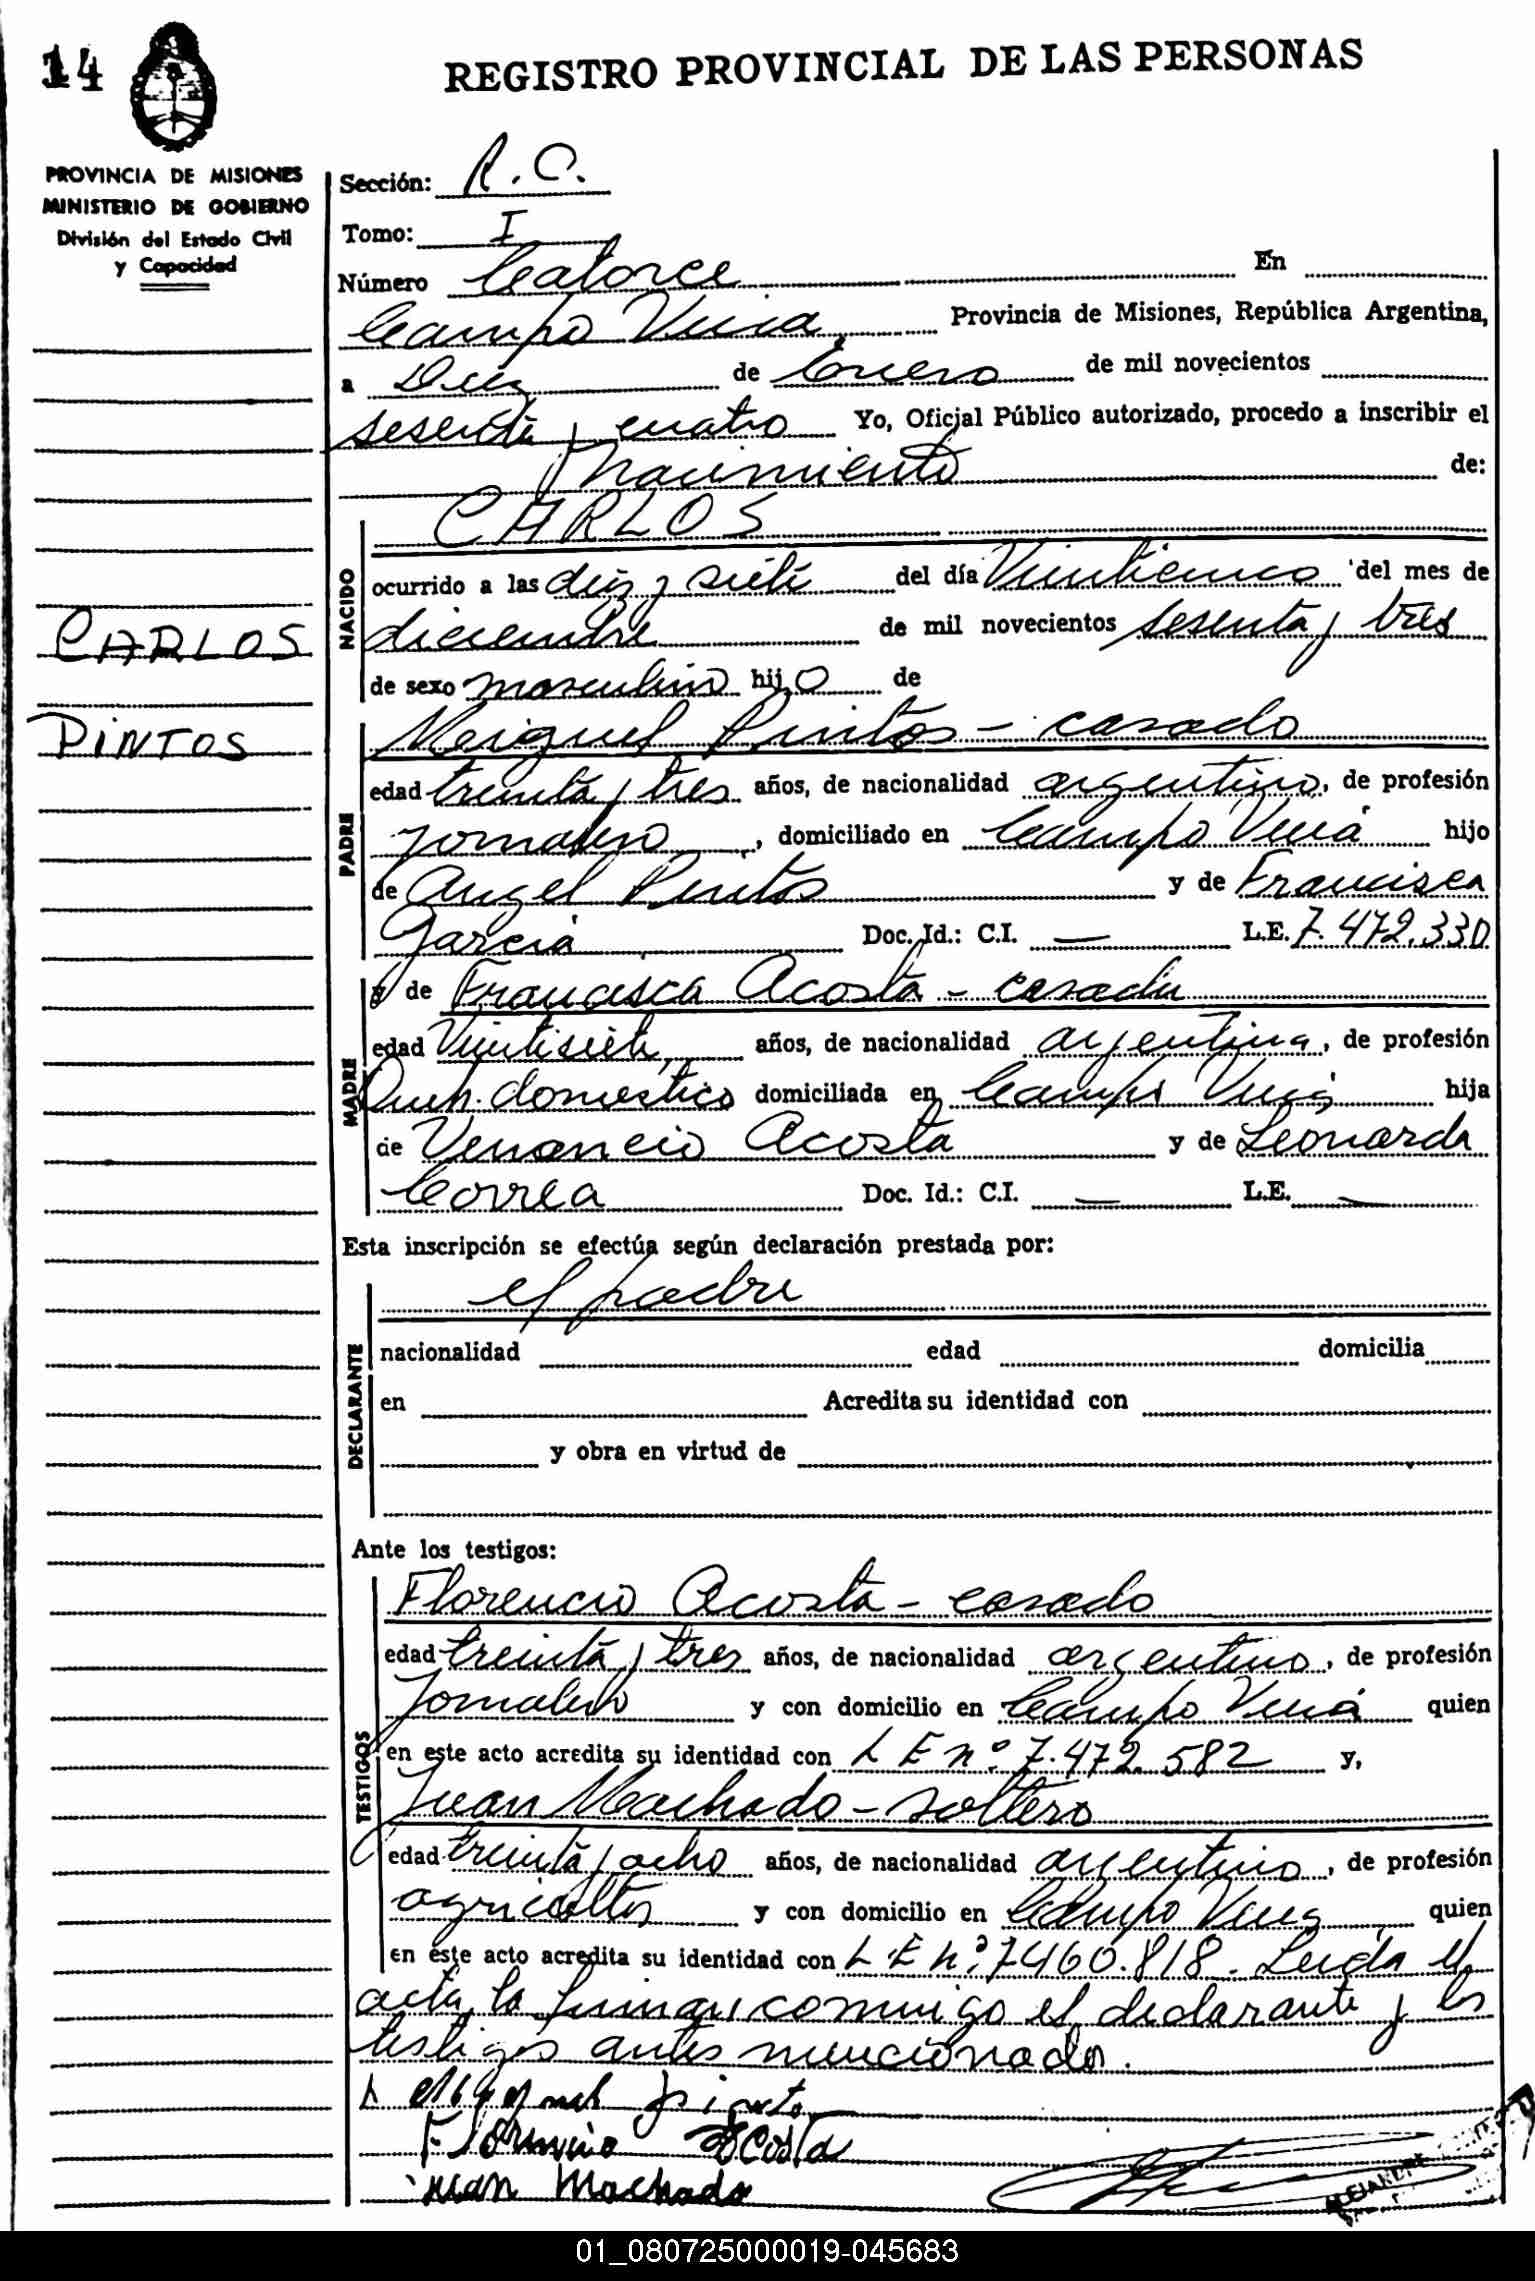 14
REGISTRO PROVINCIAL DE LAS PERSONAS
PROVINCIA DE MISIONES
MINISTERIO DE GOBIERNO
División del Estado Civil
y Capacidad
Sección: R. C.
Tomo: I
Número Catorce En
Campo Viera, Provincia de Misiones, República Argentina,
a Diez de Enero de mil novecientos
sesenta y cuatro Yo, Oficial Público autorizado, procedo a inscribir el
nacimiento de:
CARLOS
NACIDO
ocurrido a las diez y siete del día Veinticinco del mes de
diciembre de mil novecientos sesenta y tres
de sexo masculino hijo de
CARLOS
PINTOS
Meiguel Pintos - casado
PADRE
edad treinta y tres años, de nacionalidad argentino, de profesión
jornalero, domiciliado en Campo Viera hijo
de Angel Pintos y de Francisca
García Doc. Id.: C.I. — L.E. 7.472.330
y de Francisca Acosta - casada
MADRE
edad Veintisiete años, de nacionalidad argentina, de profesión
Queh. domestico domiciliada en Campo Viera hija
de Venancio Acosta y de Leonarda
Correa Doc. Id.: C.I. — L.E. —
Esta inscripción se efectúa según declaración prestada por:
el padre
DECLARANTE
nacionalidad edad domicilia
en Acredita su identidad con
y obra en virtud de
Ante los testigos:
TESTIGOS
Florencio Acosta - casado
edad treinta y tres años, de nacionalidad argentino, de profesión
Jornalero y con domicilio en Campo Viera quien
en este acto acredita su identidad con L E nº 7.472.582 y,
Juan Machado - soltero
edad treinta y ocho años, de nacionalidad argentino, de profesión
agricultor y con domicilio en Campo Viera quien
en este acto acredita su identidad con L E nº 7460.818. Leida el
acta, la firman conmigo el declarante y los
testigos antes mencionados.
Acosta
Juan Machado
01_080725000019-045683